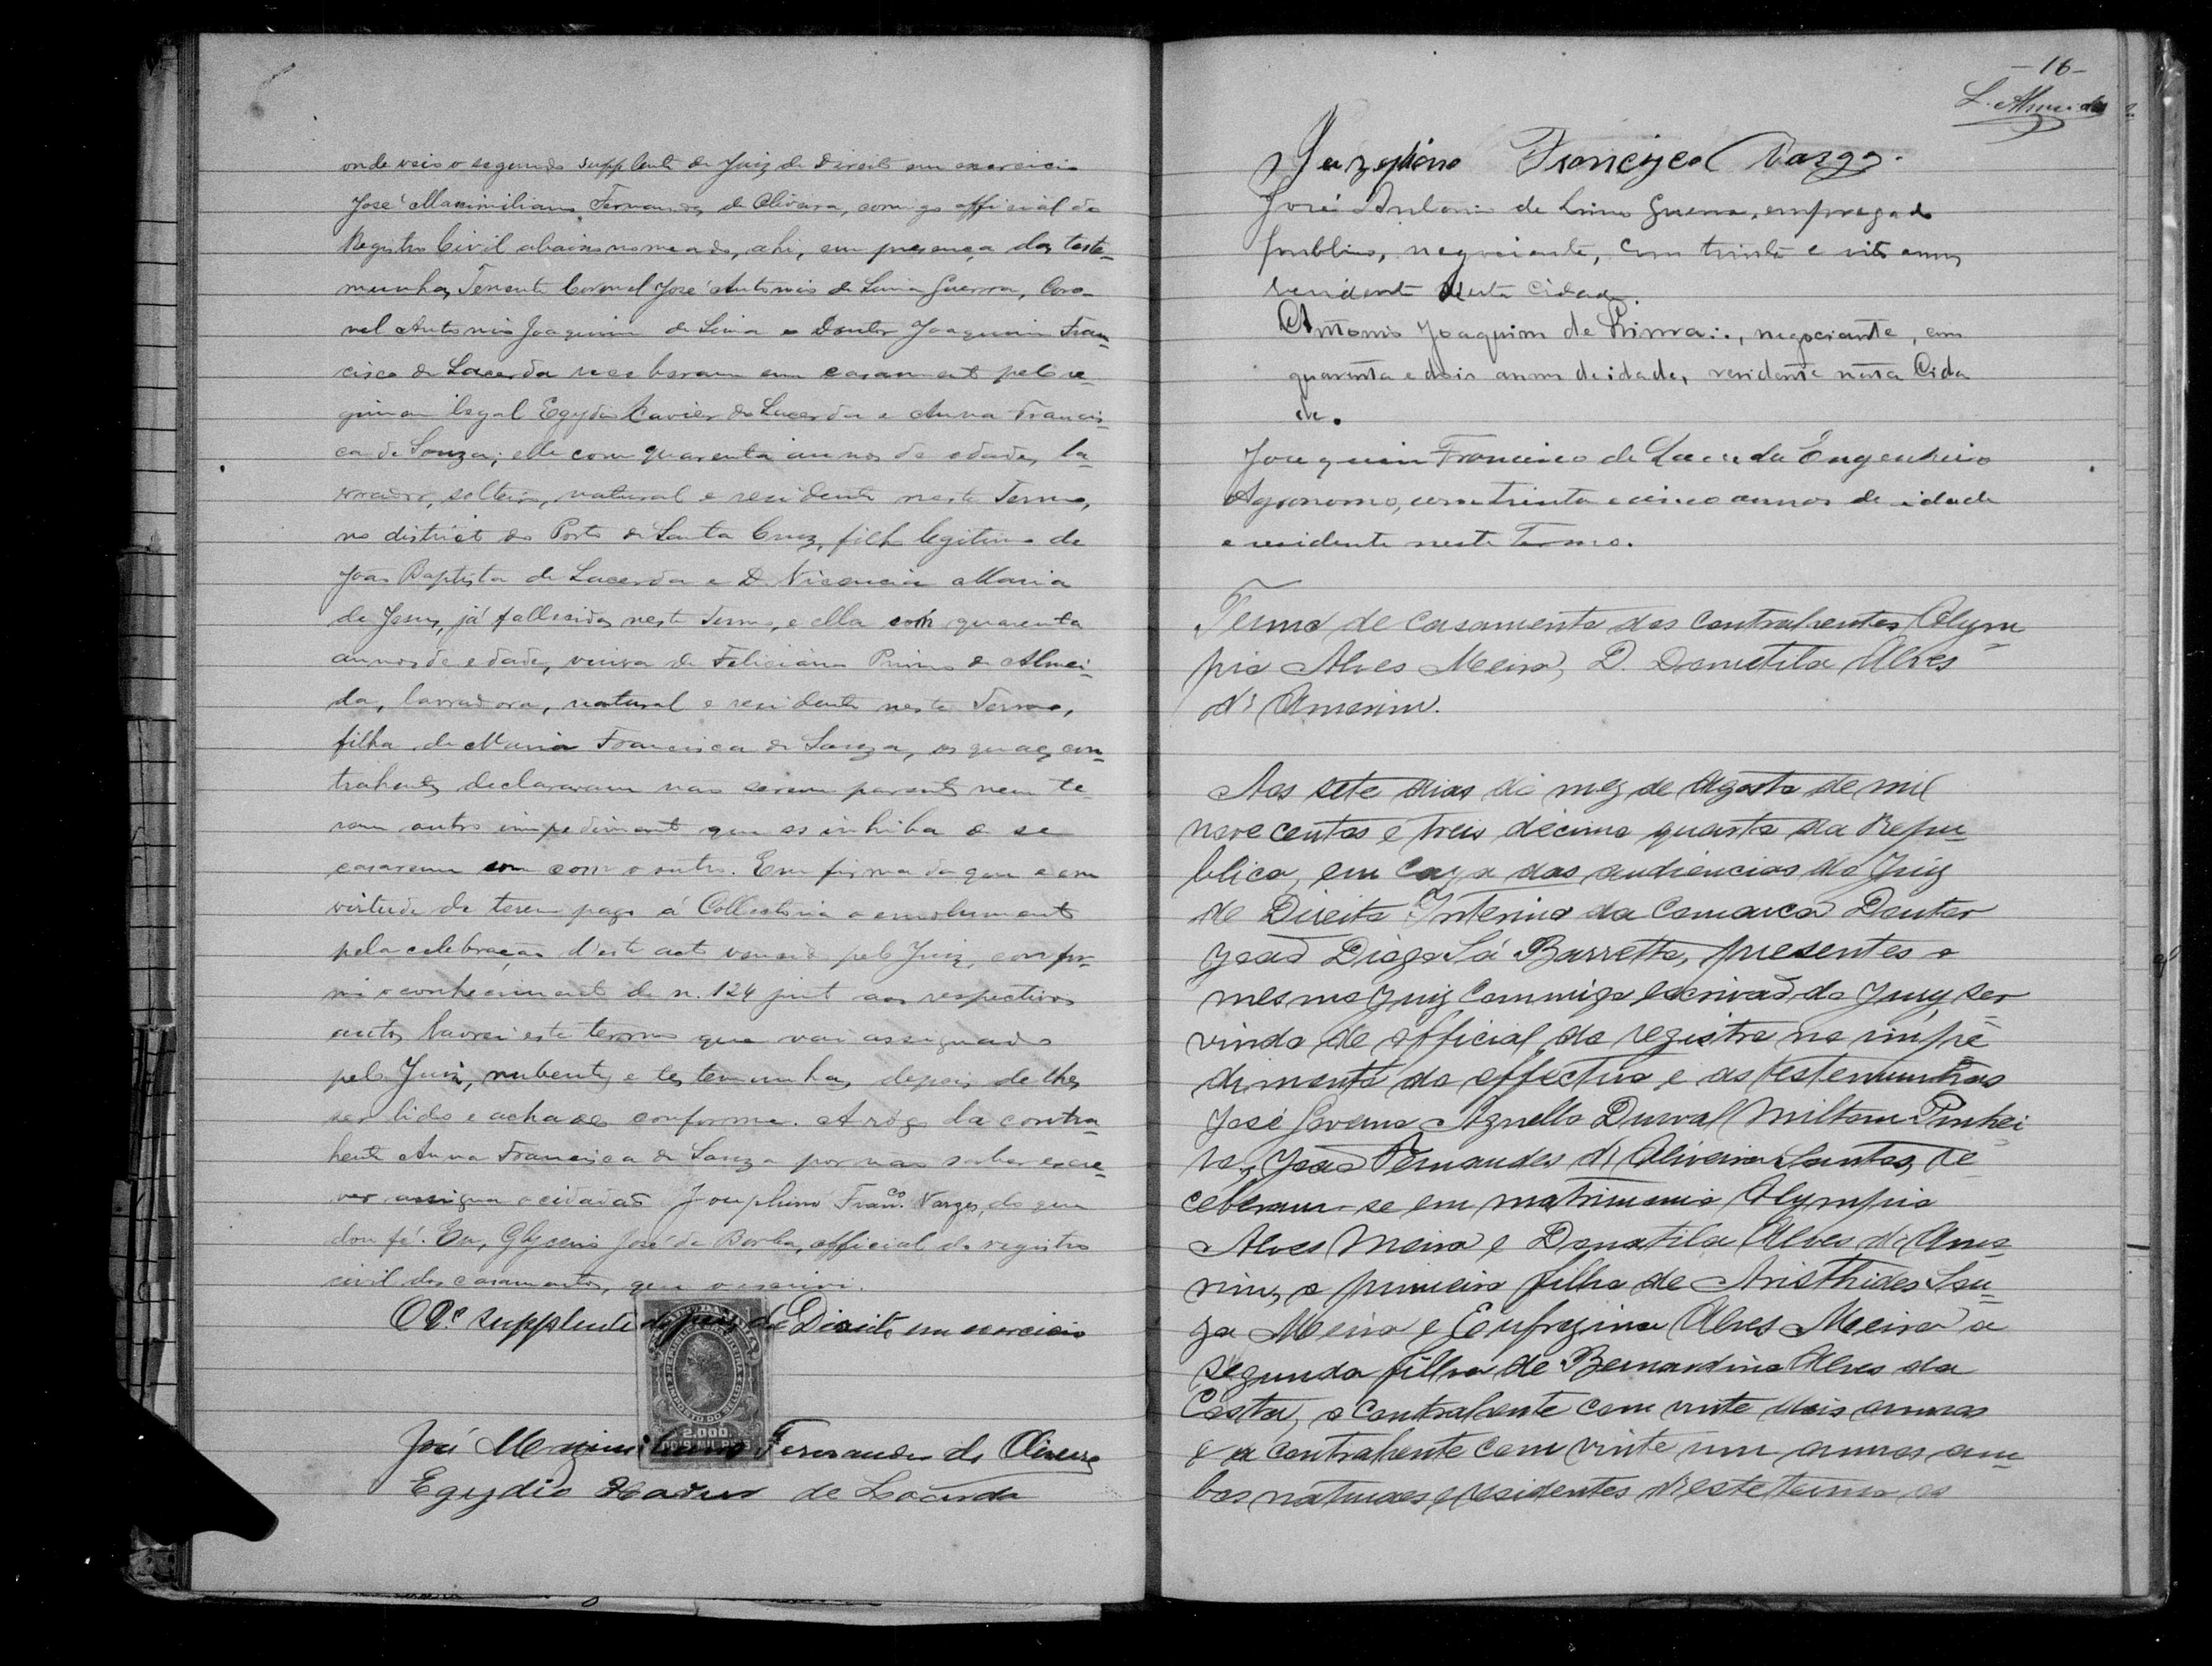 onde veio o segundo supplente do Juiz de Direito em exercicio
José Maximiliano Fernandes de Oliveira, comigo official do
Registro Civil abaixo nomeado, ahi, em presença das teste-
munhas, Tenente Coronel José Antonio de Lima Guerra, Coro-
nel Antonio Joaquim de Lima e Doutor Joaquim Fran-
cisco de Lacerda receberam em casamento pelo re-
gimen legal Egydio Xavier de Lacerda e Anna Francis-
ca de Souza; elle com quarenta annos de edade, la-
vrador, solteiro, natural e residente neste Termo,
no districto do Porto de Santa Cruz, filho legitimo de
João Baptista de Lacerda e D. Vicencia Maria
de Jesus, já fallecidos neste Termo, e ella com quarenta
annos de edade, viuva de Feliciano Primo de Almei-
da, lavradora, natural e residente neste Termo,
filha de Maria Francisca de Souza, os quaes con-
trahentes declararam não serem parentes nem te-
rem outro impedimento que os inhiba de se
casarem um com o outro. Em firmeza do que e em
virtude de terem pago á Collectoria o emolumento
pela celebração d'este acto vencido pelo Juiz, confor-
me o conhecimento de n. 124 junto aos respectivos
autos, lavrei este termo que vai assignado
pelo Juiz, nubentes e testemunhas, depois de lhes
ser lido e achado conforme. A rogo da contra-
hente Anna Francisca de Souza por não saber escre-
ver assigna o cidadão Josephino Fran.co Varges, do que
dou fé. Eu, Glycerio José de Borba, official do registro
civil dos casamentos, que o escrevi.
O 2.º supplente do juiz de Direito em exercicio
2.000
DOIS MIL REIS
José Maximiliano Fernandes de Oliveira
Egydio Xavier de Lacerda
-16-
L. Almeida
Juzephino Francisco Varges.
José Antonio de Lima Guerra, empregado
publico, negociante, com trinta e oito annos
residente nesta cidade.
Antonio Joaquim de Lima, negociante, com
quarenta e dois annos de idade, residente nesta Cida
de.
Joaquim Francisco de Lacerda Engenheiro
Agronomo, com trinta e cinco annos de idade
e residente neste Termo.
Termo de casamento dos contrahentes Olym-
pio Alves Meira, D. Donatila Alves
d'Amorim.
Aos sete dias do mez de Agosto de mil
nove centos e treis decimo quarto da Repu-
blica, em caza das audiencias do Juiz
de Direito Interino da Comarca Doutor
João Diogo Sá Barretto, presentes o
mesmo Juiz commigo escrivão do Jury, ser
vindo de official do registro no impe-
dimento do effectivo e as testemunhas
José Agnello Durval Miltom Pinhei
ro, João Fernandes d'Oliveira Santos, re-
ceberam-se em matrimonio Olympio
Alves Meira e Donatila Alves d'Amo-
rim, o primeiro filho de Aristhides Sou-
za Meira e Eufrezina Alves Meira a
segunda filha de Bernardino Alves da
Costa, o contrahente com vinte dois annos
e a contrahente com vinte um annos am-
bos naturaes e residentes n'este termo os